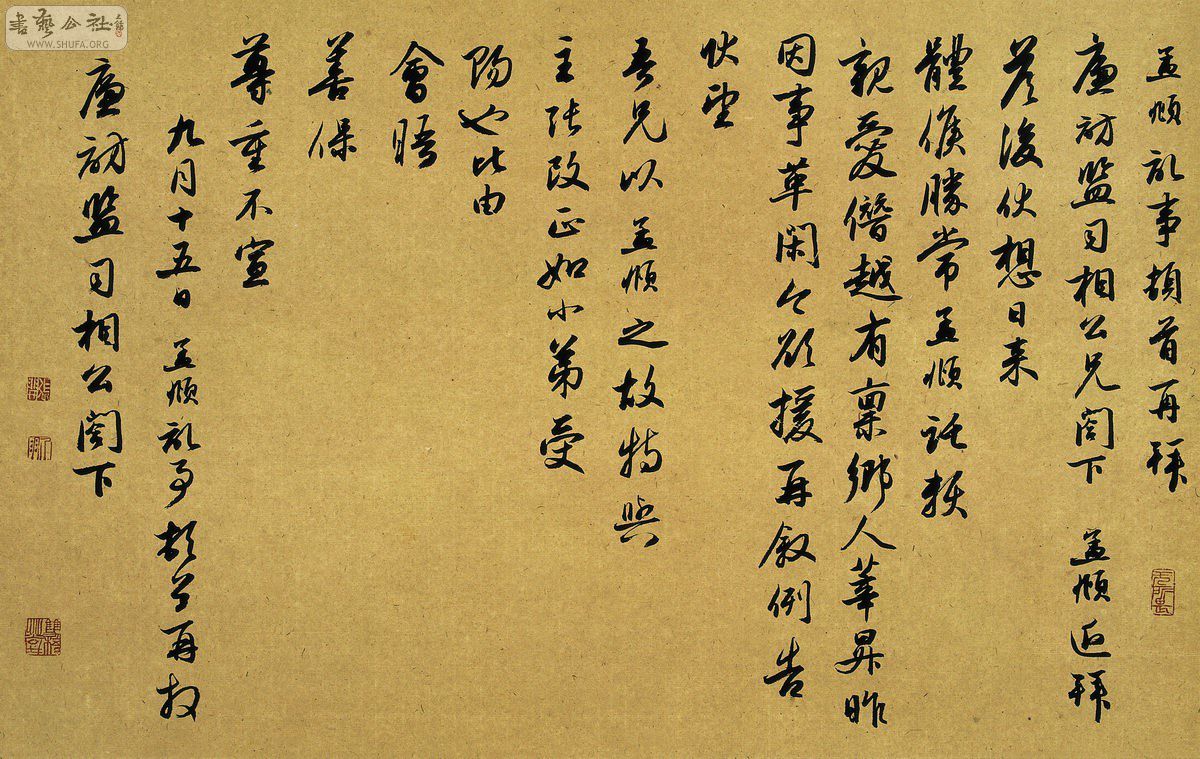 孟頫記事頓首再拜
廉訪監司相公兄閤下 孟頫近拜
答後伏想日來
體候勝常孟頫託賴
親愛僭越有稟鄉人莘昇昨
因事革閑今欲援再敘例告
伏望
吾兄以孟頫之故特與
主張改正如小弟受
賜也比由
會晤
善保
尊重不宣
九月十五日 孟頫記事頓首再拜
廉訪監司相公閤下
書藝公社
WWW.SHUFA.ORG